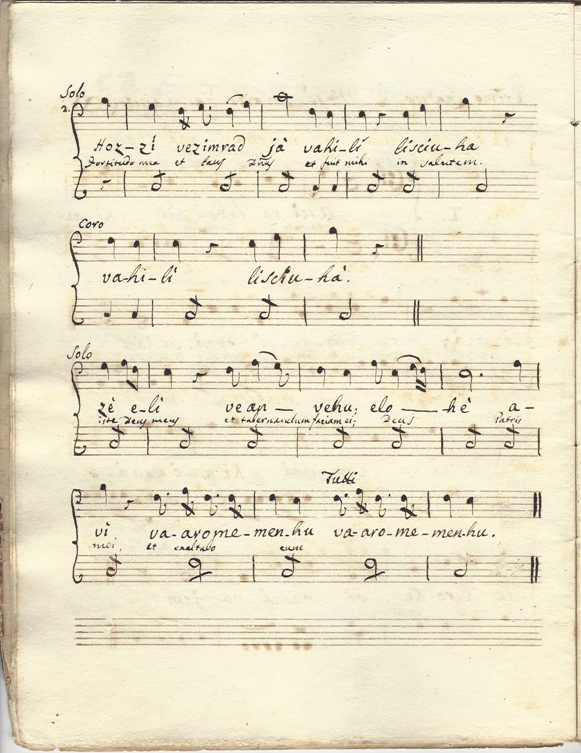 Solo
2.
Hoz-zi vezimrad jà vahi-lì lisciu-ha
Fortitudo mea et laus Dñus et fuit mihi in salutem.
Coro
va-hi-lì lisciu-hà.
Solo
zè e-lì vean — vehu; elo — hè a-
iste Deus meus et tabernaculum faciam ei; Deus Patris
Tutti
vì va-arome-men-hu va-aro-me-menhu.
mei, et exaltabo eum